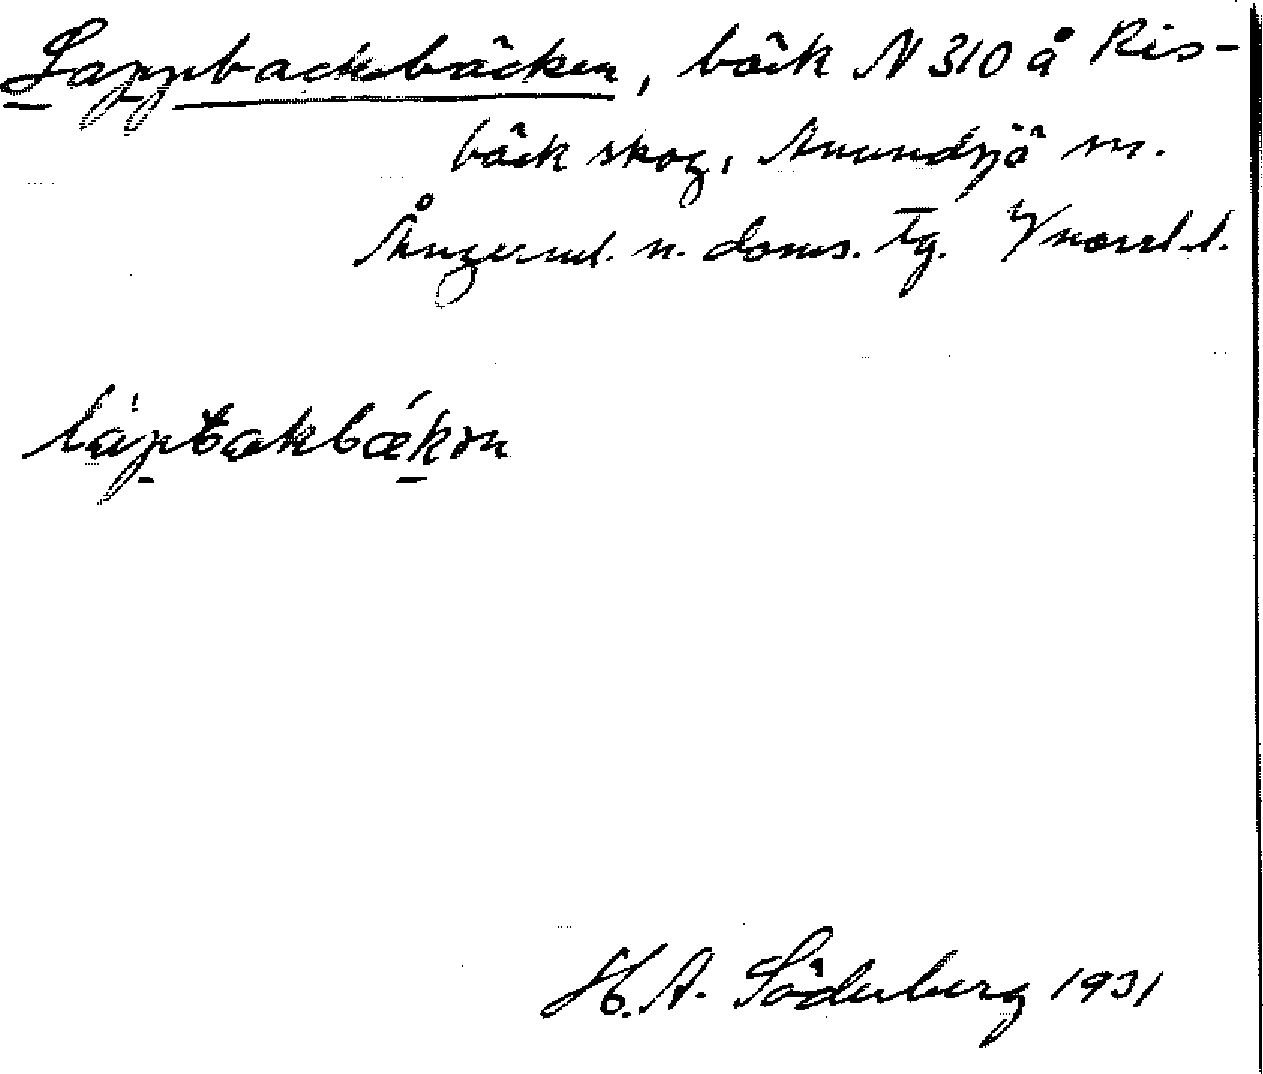 Lappbackbäcken, bäck N 310 å Ris-
bäck skog, Anundsjö sn.
Ångerml. n. doms. Tg. Vnorrl. l.
làpbakbækən
H. A. Söderberg 1931